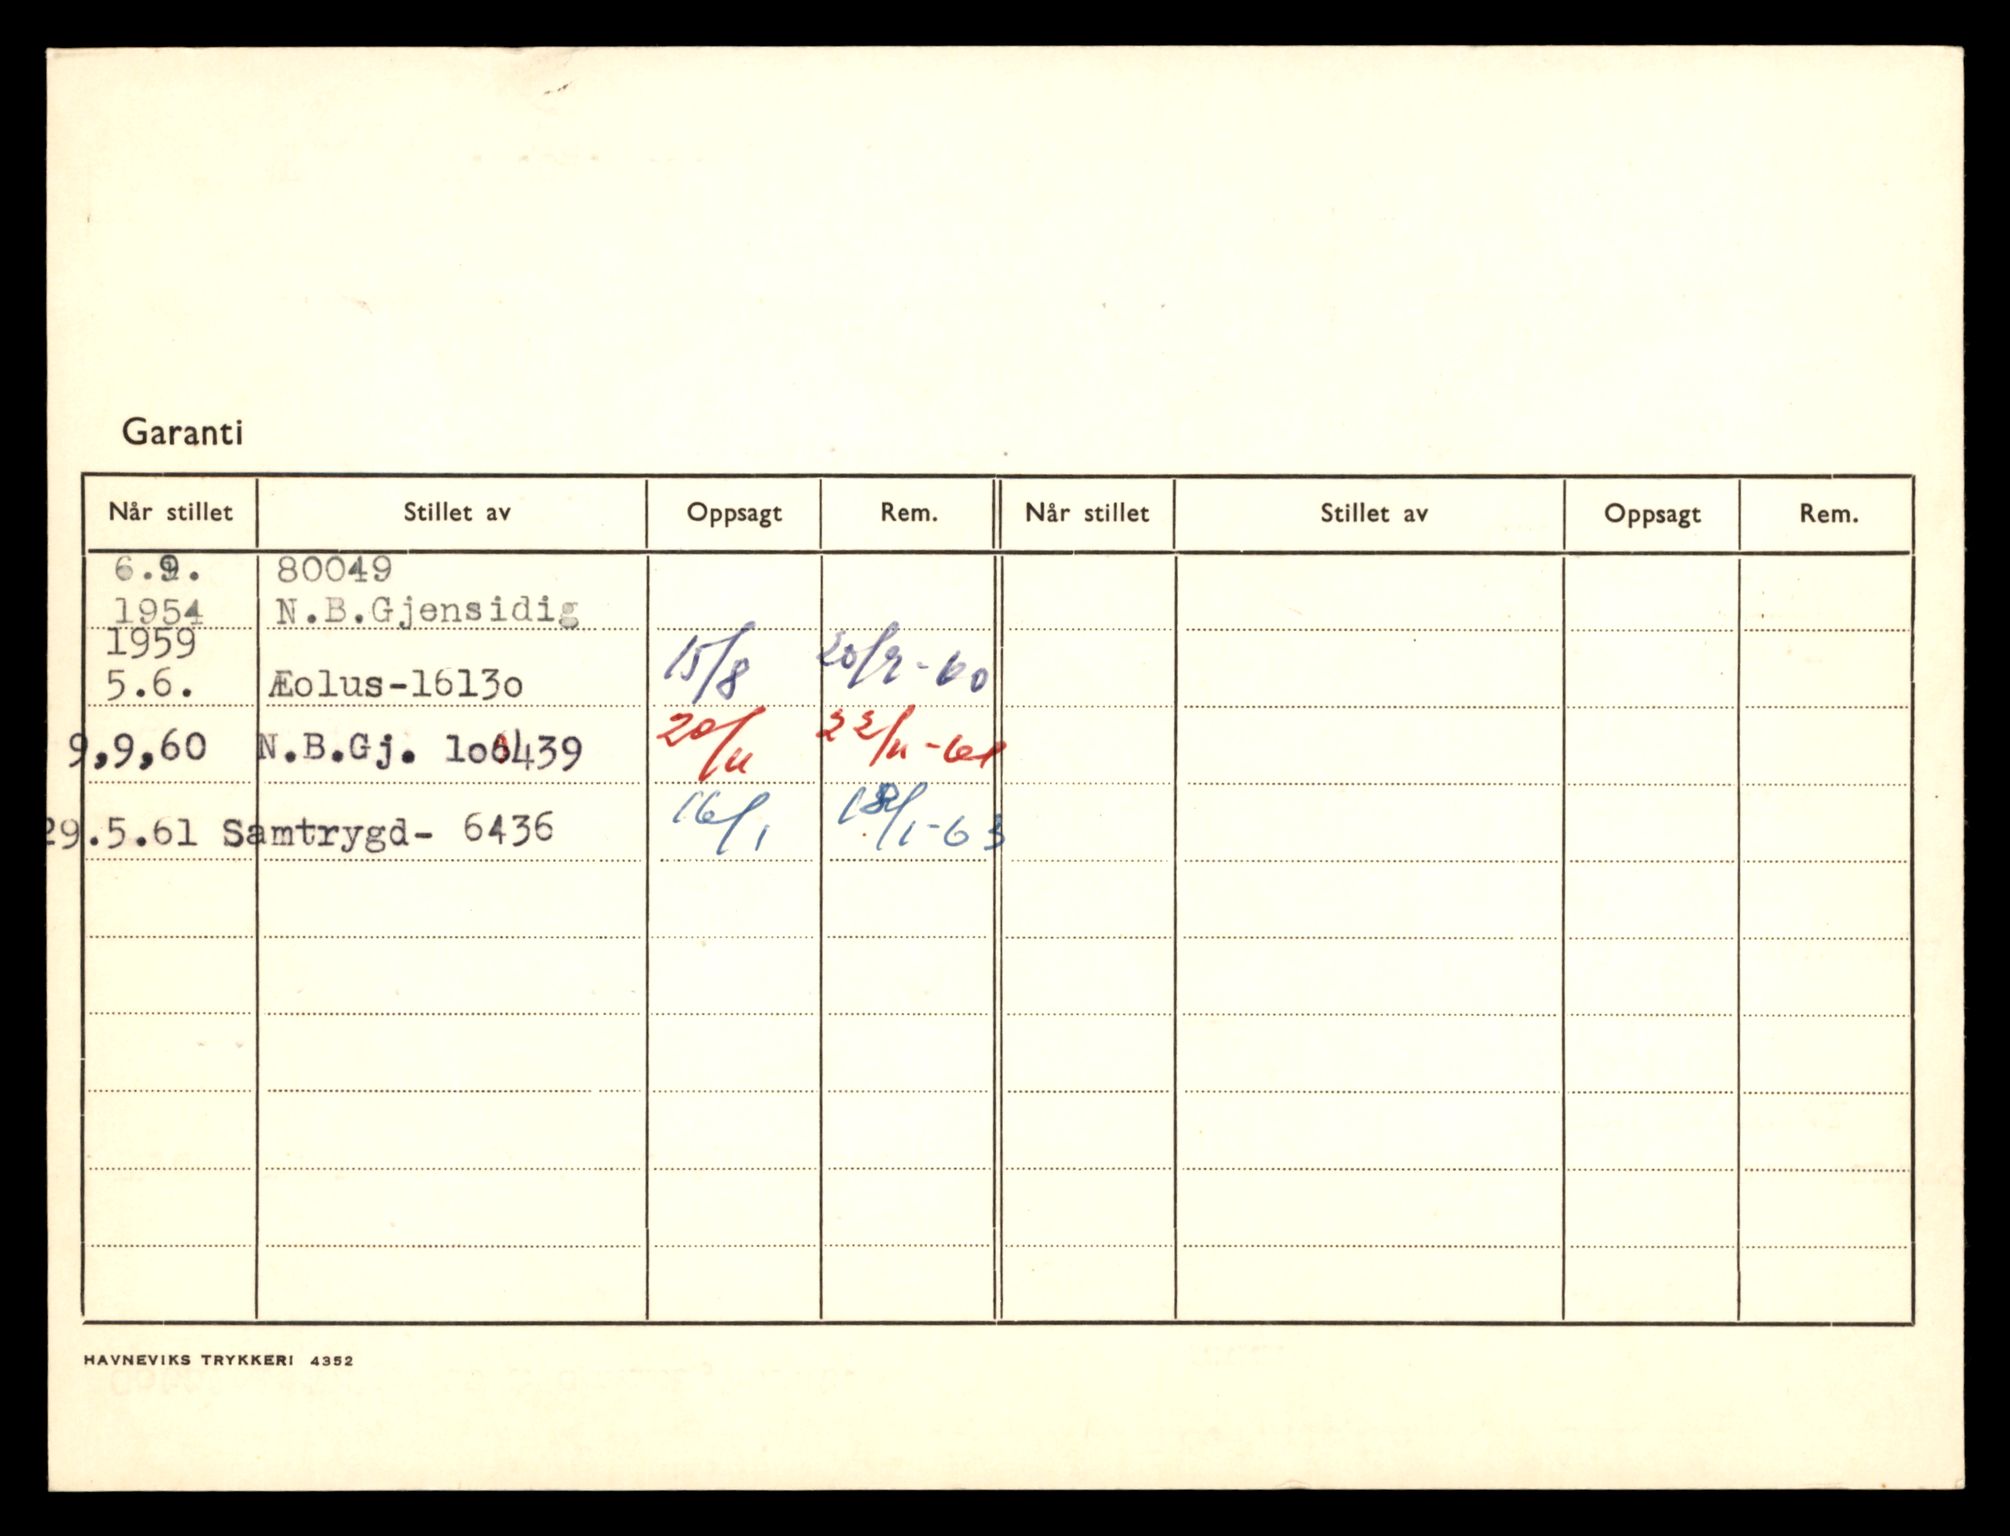 Garanti
Når stillet Stillet av Oppsagt Rem. Når stillet Stillet av Oppsagt Rem.
6.9. 80049
1954 N.B.Gjensidig
1959
5.6. Æolus-1613o 15/8 20/9-60
9,9,60 N.B.Gj. 20/11 22/11-61
29.5.61 Samtrygd- 6436 16/1 18/1-63
HAVNEVIKS TRYKKERI 4352